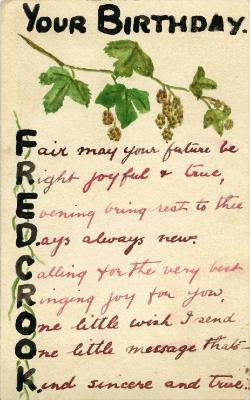 YOUR BIRTHDAY.
Fair may your future be
Right joyful & true,
Evening bring rest to thee
Days always new.
Calling for the very best
Ringing joy for you,
One little wish I send
One little message thats
Kind sincere and true.